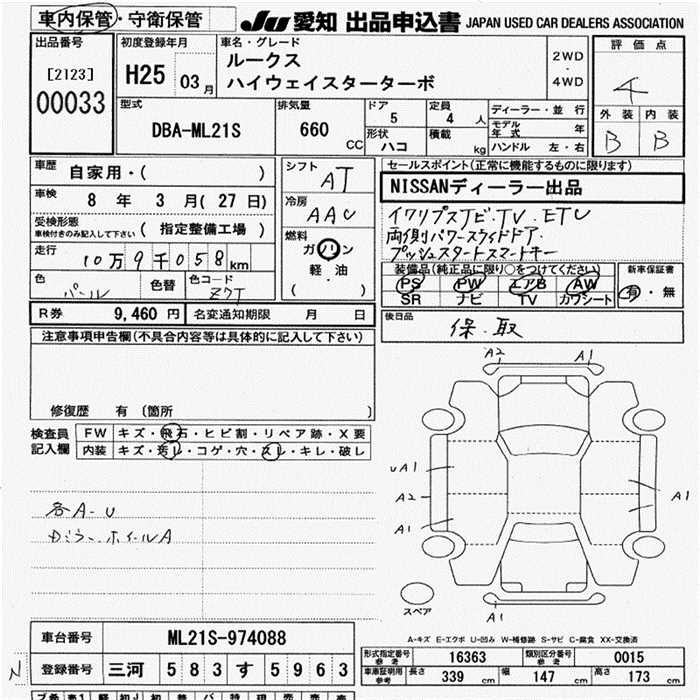 車内保管・守衛保管
JU 愛知 出品申込書 JAPAN USED CAR DEALERS ASSOCIATION
出品番号
[2123]
00033
初度登録年月
H25 03月
車名・グレード
ルークス
ハイウェイスターターボ
2WD
・
4WD
評価点
4
外装 内装
B B
型式
DBA-ML21S
排気量
660 CC
ドア
5
定員
4 人
形状
ハコ
積載
kg
ディーラー・並行
モデル年式 年
ハンドル 左・右
車歴
自家用・( )
車検
8年 3月(27日)
受検形態
車検付きのみ記入して下さい
(指定整備工場)
走行
10万9千058km
色
パール
色替
色コード
Z7T
シフト
AT
冷房
AAC
燃料
ガソリン
軽・油
( )
セールスポイント(正常に機能するものに限ります)
NISSANディーラー出品
TV. ETC
両側パワースライドドア.
プッシュスタートスマートキー
装備品(純正品に限り○をつけてください)
PS PW エアB AW
SR ナビ TV カワシート
新車保証書
有・無
R券 9,460円 名変通知期限 月 日
後日品
保.取
注意事項申告欄(不具合内容等は具体的に記入して下さい)
修復歴 有〔箇所 〕
検査員
記入欄
FW キズ・飛石・ヒビ割・リペア跡・X要
内装 キズ・汚し・コゲ・穴・スレ・キレ・破し
各A-U
ホイールA
A2 A1
UA1
A2
A1
A1
スペア
A1
A-キズ E-エクボ U-凹み W-補修跡 S-サビ C-腐食 XX-交換済
車台番号 ML21S-974088
N
登録番号 三河 583 す 5963
形式指定番号
参考
16363
類別区分番号
参考
0015
車庫証明用
参考
長さ 339cm 幅 147cm 高さ 173cm